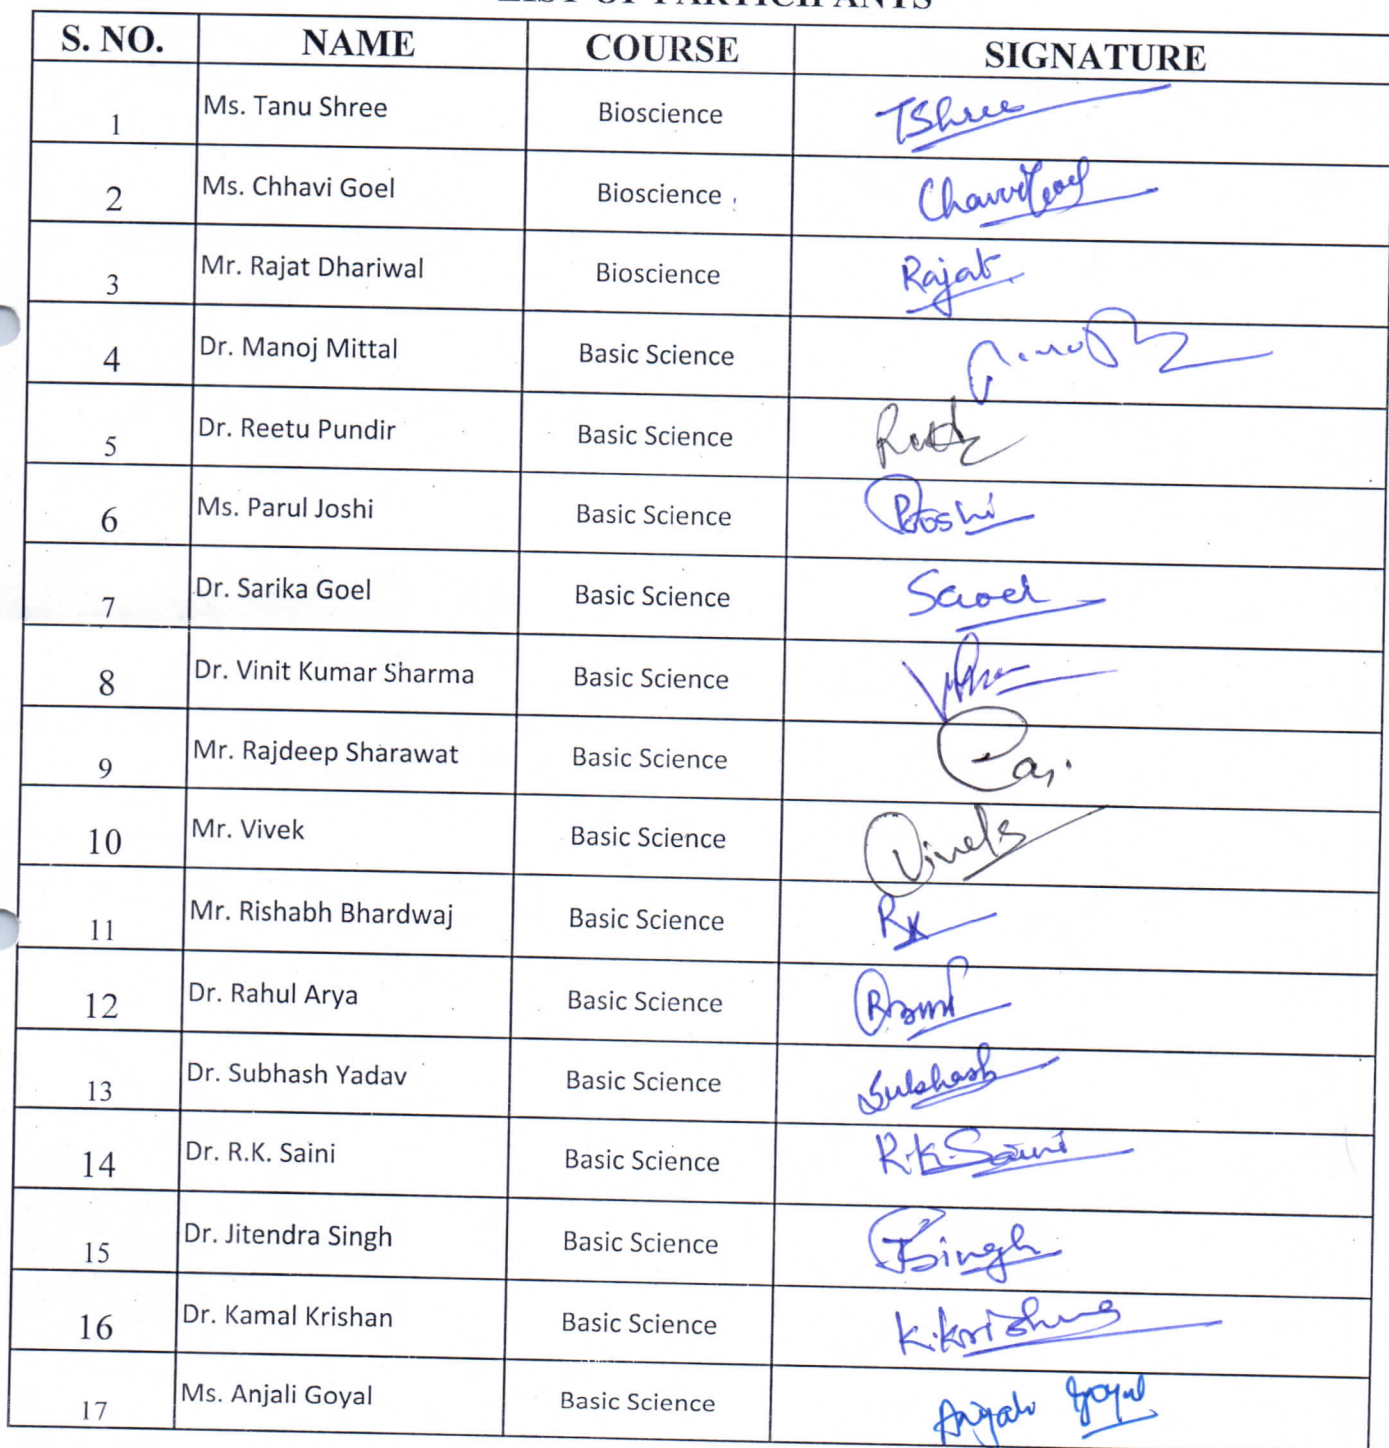 LIST OF PARTICIPANTS
S. NO. NAME COURSE SIGNATURE
1 Ms. Tanu Shree Bioscience TShree
2 Ms. Chhavi Goel Bioscience
3 Mr. Rajat Dhariwal Bioscience Rajat
4 Dr. Manoj Mittal Basic Science
5 Dr. Reetu Pundir Basic Science
6 Ms. Parul Joshi Basic Science
7 Dr. Sarika Goel Basic Science
8 Dr. Vinit Kumar Sharma Basic Science
9 Mr. Rajdeep Sharawat Basic Science
10 Mr. Vivek Basic Science Vivek
11 Mr. Rishabh Bhardwaj Basic Science
12 Dr. Rahul Arya Basic Science
13 Dr. Subhash Yadav Basic Science Subhash
14 Dr. R.K. Saini Basic Science R.K. Saini
15 Dr. Jitendra Singh Basic Science JSingh
16 Dr. Kamal Krishan Basic Science
17 Ms. Anjali Goyal Basic Science Anjali Goyal